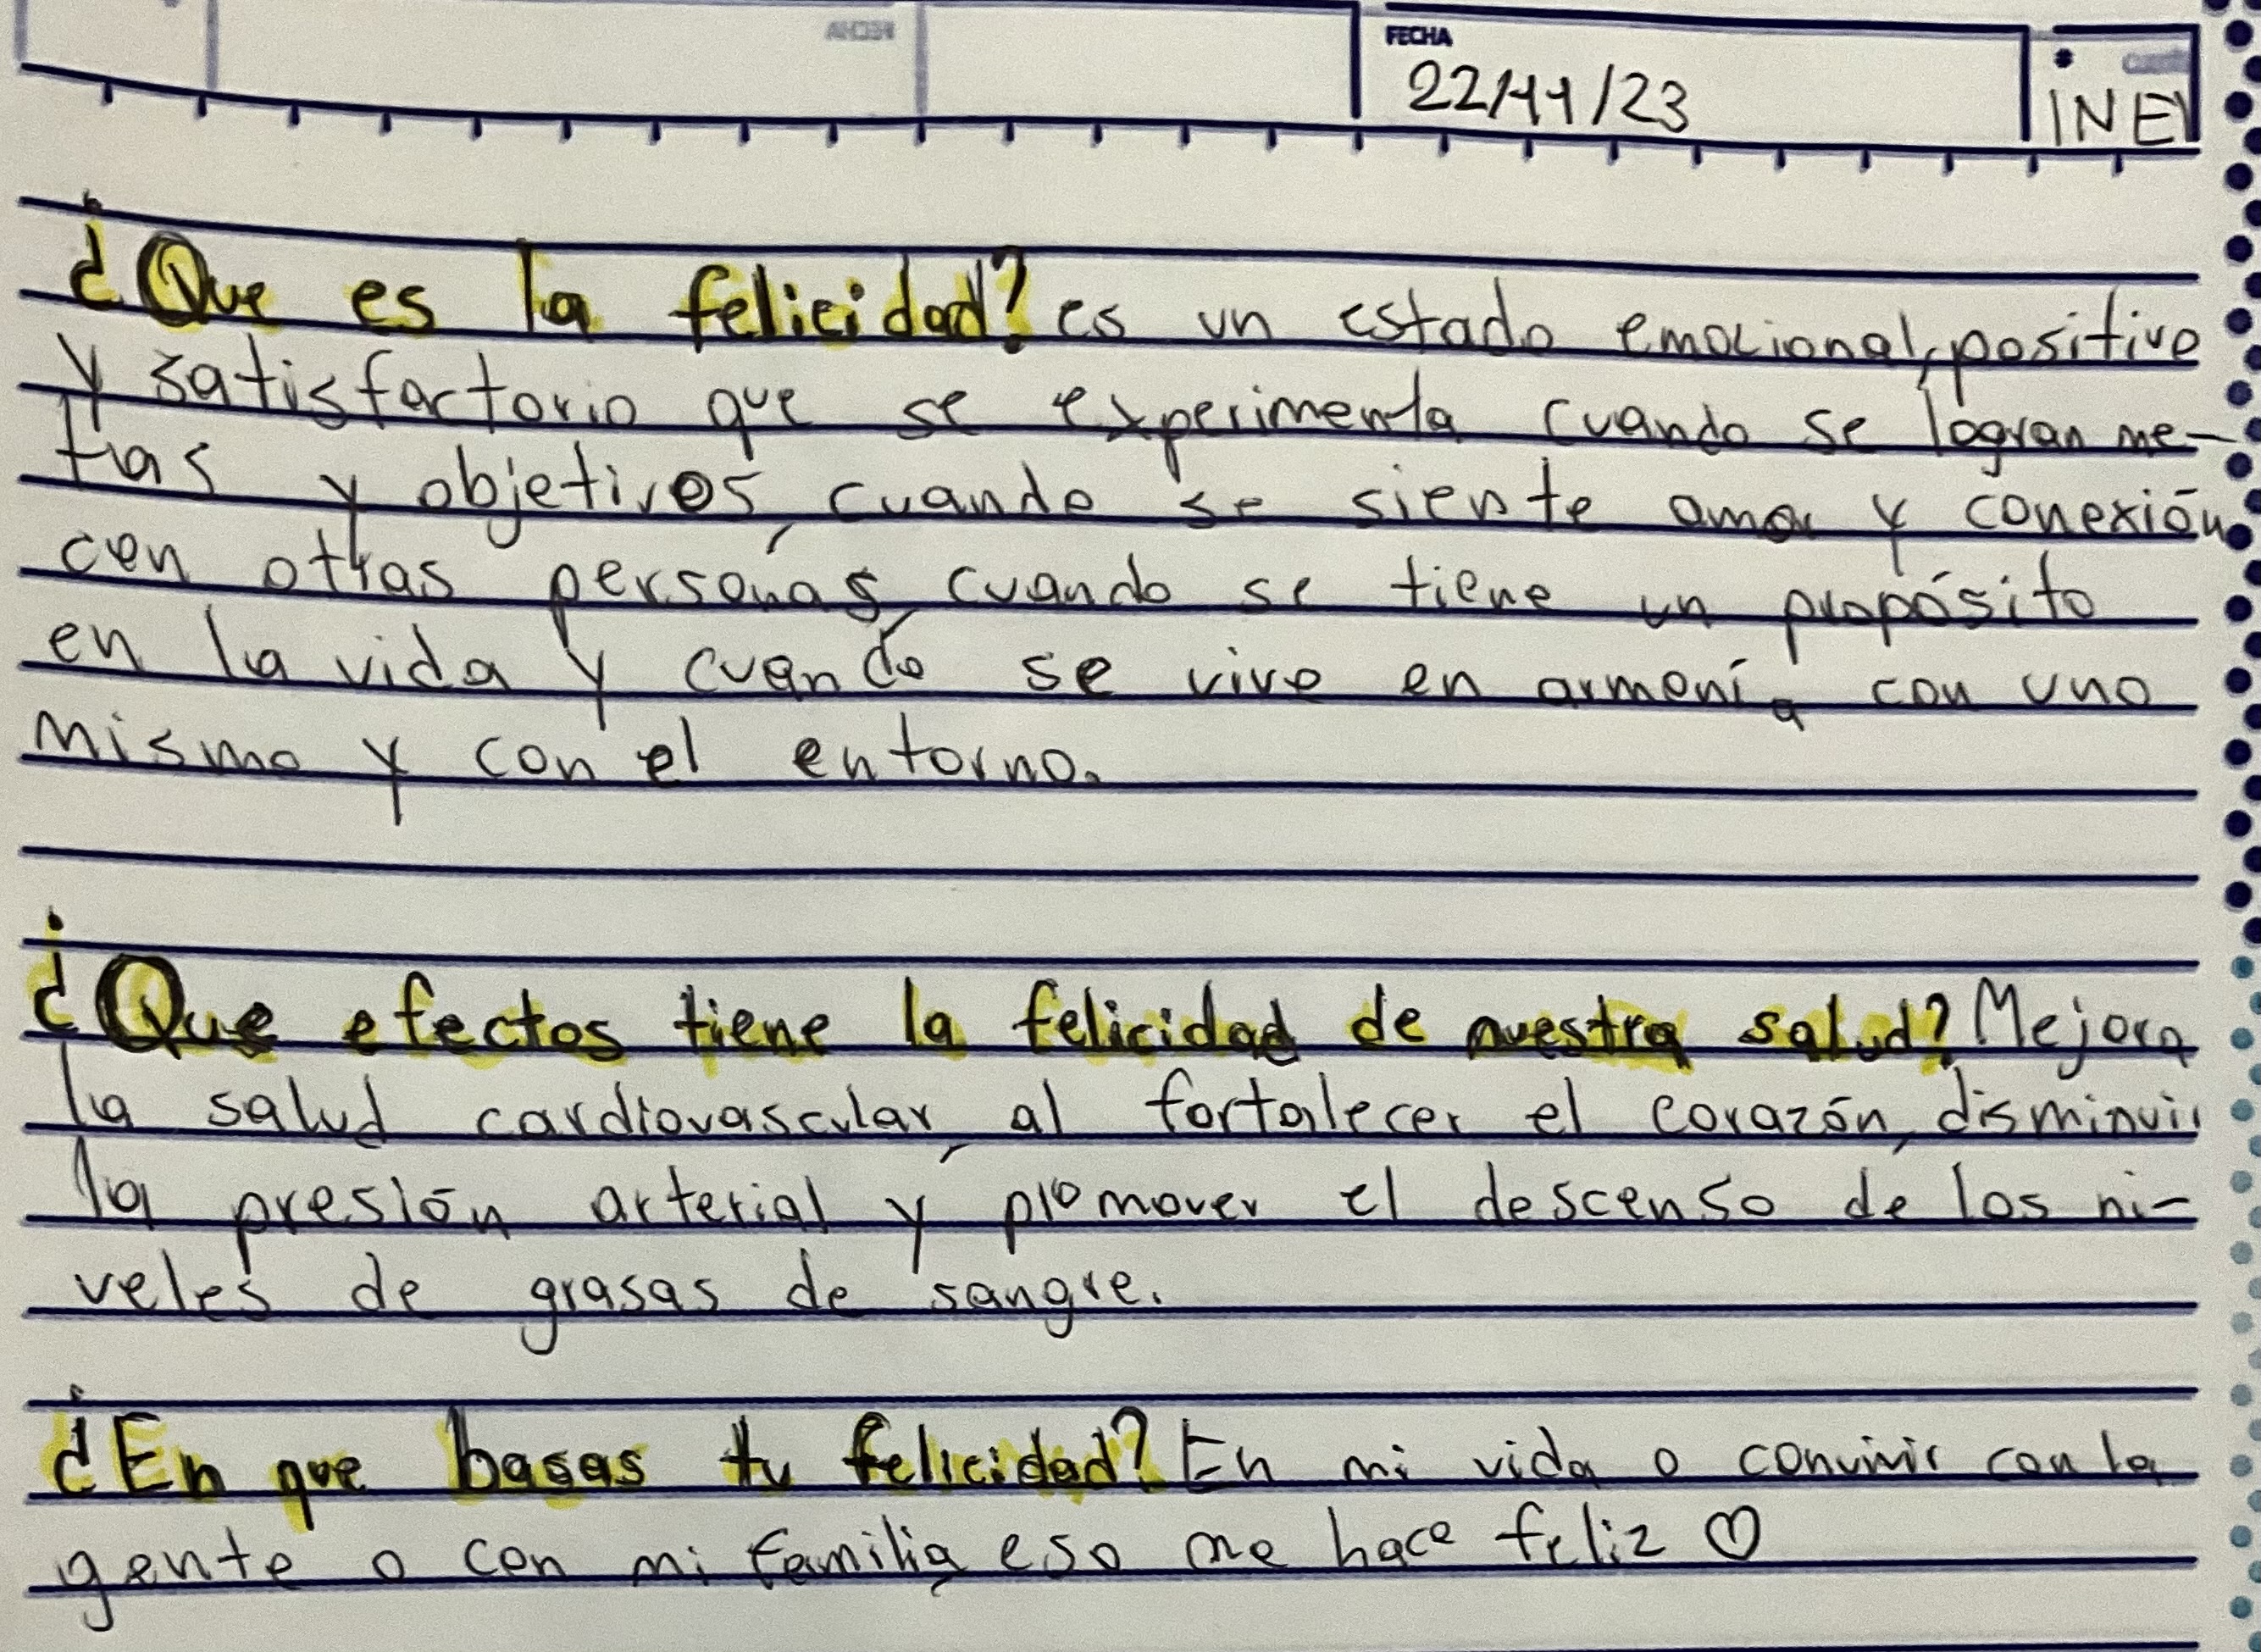 FECHA
22/11/23
INEI
¿Que es la felicidad? es un estado emocional, positivo
y satisfactorio que se experimenta cuando se logran me-
tas y objetivos, cuando se siente amor y conexión
con otras personas, cuando se tiene un propósito
en la vida y cuando se vive en armonía con uno
mismo y con el entorno.
¿Que efectos tiene la felicidad de nuestra salud? Mejora
la salud cardiovascular, al fortalecer el corazón, disminuir
la presión arterial y promover el descenso de los ni-
veles de grasas de sangre.
¿En que basas tu felicidad? En mi vida o convivir con la
gente o con mi familia eso me hace feliz ♡